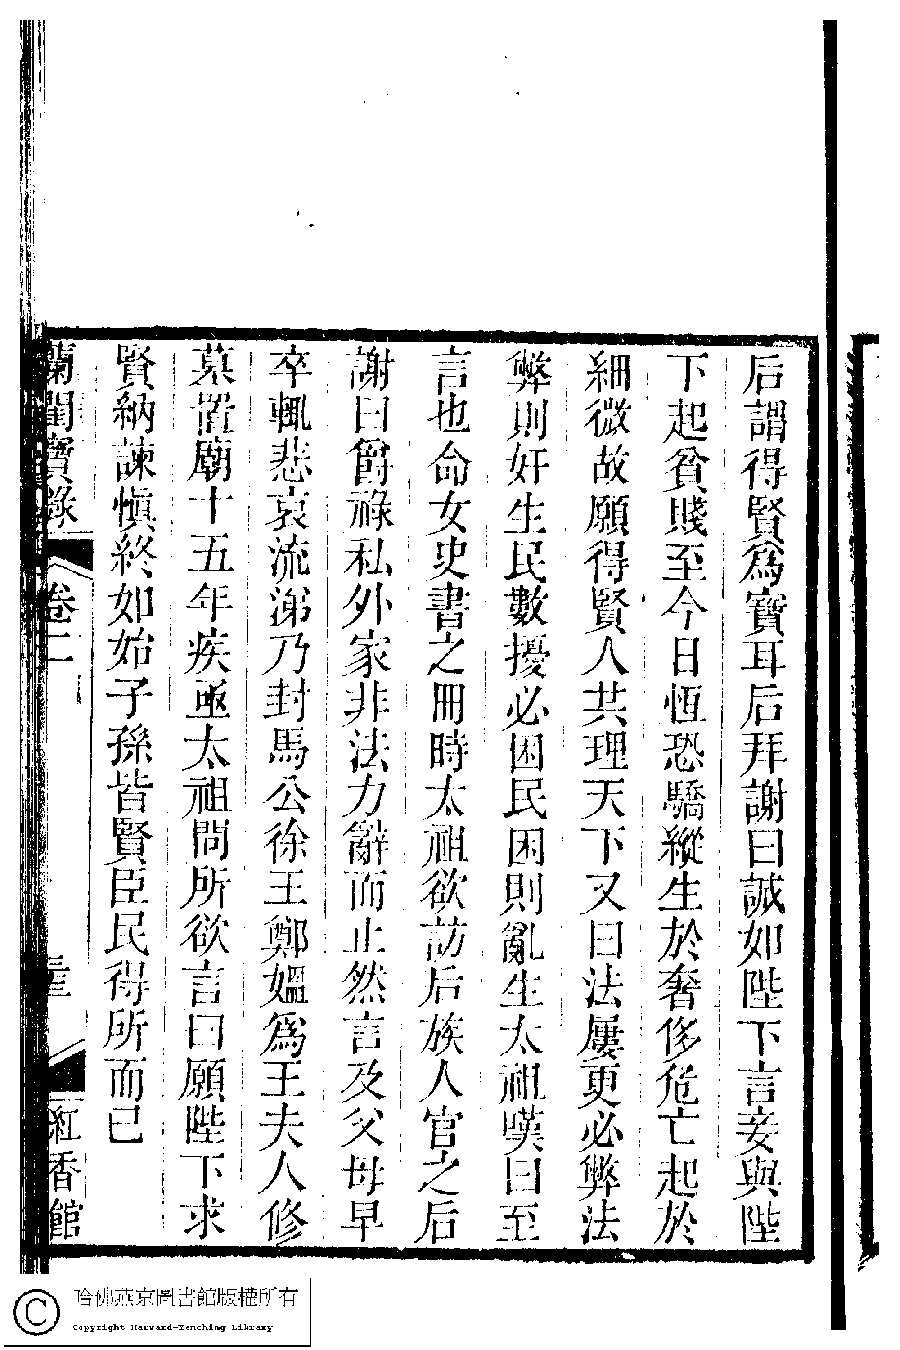 后謂得賢為寶耳后拜謝曰誠如陛下言妾與陛
下起貧賤至今日恆恐驕縱生於奢侈危亡起於
細微故願得賢人共理天下又曰法屢更必弊法
弊則奸生民數擾必困民困則亂生太祖嘆曰至
言也命女史書之冊時太祖欲訪后族人官之后
謝曰爵祿私外家非法力辭而止然言及父母早
卒輒悲哀流涕乃封馬公徐王鄭媼為王夫人修
墓置廟十五年疾亟太祖問所欲言曰願陛下求
賢納諫慎終如始子孫皆賢臣民得所而已
蘭閨寶錄
卷二
紅香館
哈佛燕京圖書館版權所有
Copyright Harvard-Yenching Library